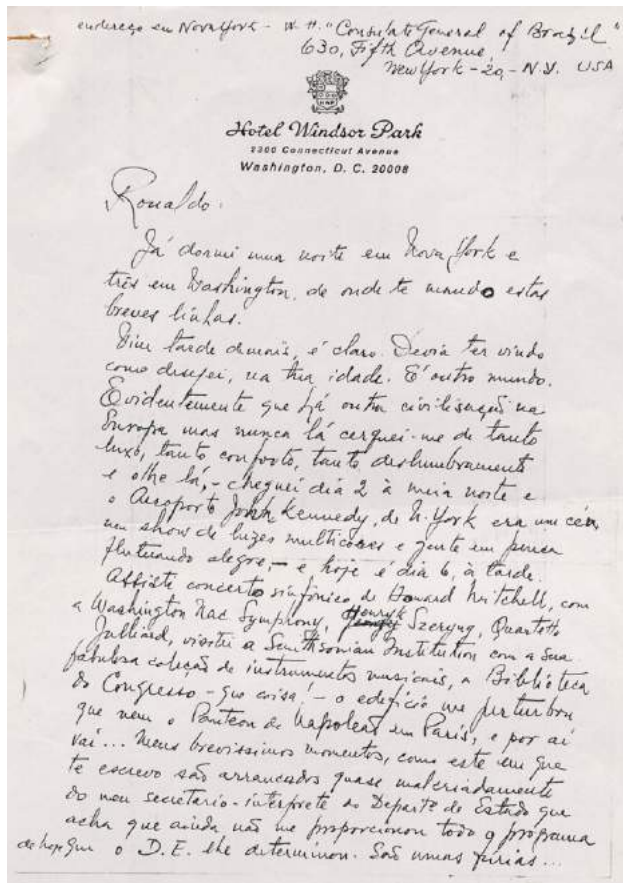 endereço em Nova York - "Consulate General of Brazil"
630, Fifth Avenue
New York - 20, - N.Y. USA
Hotel Windsor Park
2300 Connecticut Avenue
Washington, D. C. 20008
Ronaldo.
Já dormi uma noite em Nova York e
três em Washington, de onde te mando estas
breves linhas.
Vim tarde demais, é claro. Devia ter vindo
como desejei, na tua idade. É outro mundo.
Evidentemente que há outra civilisação na
Europa mas nunca lá cerquei-me de tanto
luxo, tanto conforto, tanto deslumbramento
e olhe lá, - cheguei dia 2 à meia noite e
o Aeroporto John Kennedy, de N. York era um céu,
um show de luzes multicores e gente em
flutuando alegre, - e hoje é dia 6, à tarde.
Assisti concerto sinfônico de Howard Mitchell, com
a Washington Nac Symphony, Henryk Szeryng, Quartetto
Julliard, visitei a Smithsonian Institution com a sua
fabulosa coleção de instrumentos musicais, a Biblioteca
do Congresso - que coisa! - o edifício me perturbou
que nem o Panteon de Napoleão em Paris, e por aí
vai... Meus brevissimos momentos, como este em que
te escrevo são arrancados quase malcriadamente
do meu secretario-interprete do Departo de Estado que
acha que ainda não me proporcionou todo o programa
de hoje que o D.E. lhe determinou. São umas fúrias...